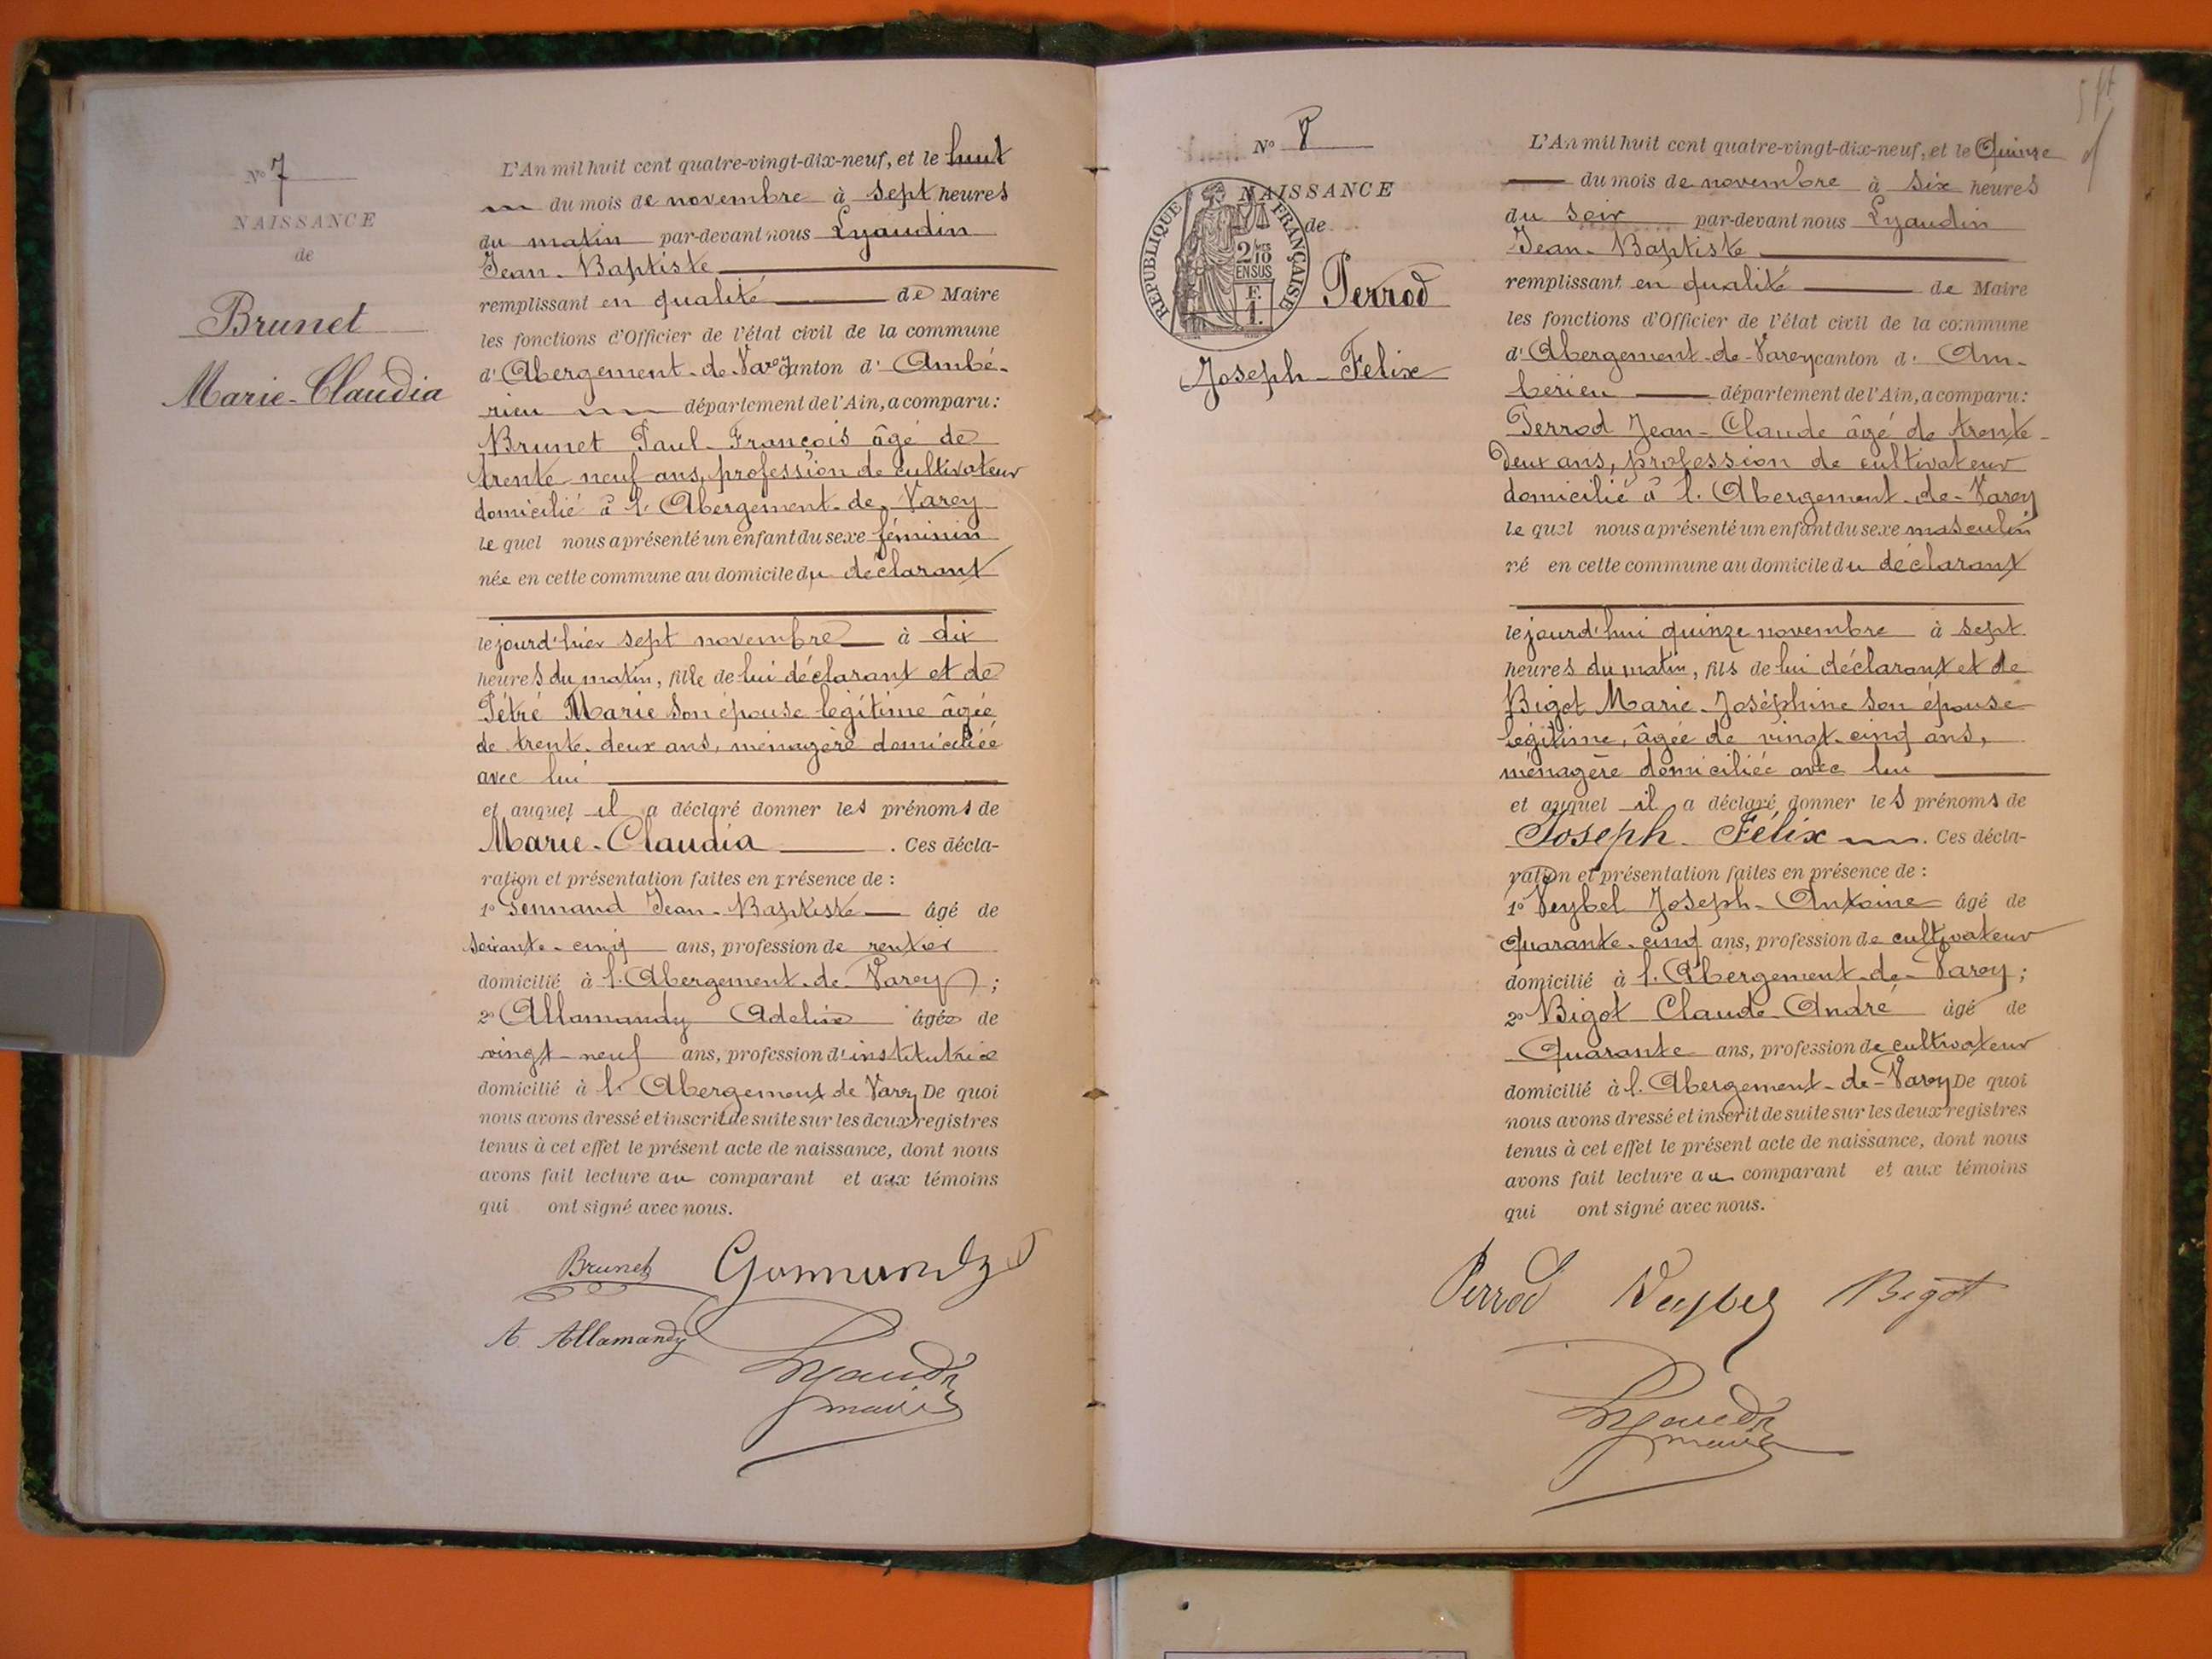 N° 7
NAISSANCE
de
Brunet
Marie-Claudia
L'An mil huit cent quatre-vingt-dix-neuf, et le huit
du mois de novembre à sept heures
du matin par-devant nous Lyaudin
Jean-Baptiste
remplissant en qualité de Maire
les fonctions d'Officier de l'état civil de la commune
d'Abergement-de-Varey canton d'Ambé-
rieu département de l'Ain, a comparu :
Brunet Paul-François âgé de
trente neuf ans, profession de cultivateur
domicilié à l'Abergement-de-Varey
le quel nous a présenté un enfant du sexe féminin
née en cette commune au domicile du déclarant
le jourd'hier sept novembre à dix
heures du matin, fille de lui déclarant et de
Pétré Marie son épouse légitime âgée
de trente-deux ans, ménagère domiciliée
avec lui
et auquel il a déclaré donner les prénoms de
Marie-Claudia. Ces décla-
ration et présentation faites en présence de :
1° Jean-Baptiste âgé de
soixante-cinq ans, profession de rentier
domicilié à l'Abergement-de-Varey ;
2° Allamandy Adeline âgée de
vingt-neuf ans, profession d'institutrice
domicilié à l'Abergement de Varey De quoi
nous avons dressé et inscrit de suite sur les deux registres
tenus à cet effet le présent acte de naissance, dont nous
avons fait lecture au comparant et aux témoins
qui ont signé avec nous.
Brunet
A. Allamandy
Lyaudin
maire
N° 8
NAISSANCE
de
RÉPUBLIQUE FRANÇAISE
2/10
EN SUS
F.
1.
Perrod
Joseph-Felix
L'An mil huit cent quatre-vingt-dix-neuf, et le Quinze
du mois de novembre à six heures
du soir par-devant nous Lyaudin
Jean-Baptiste
remplissant en qualité de Maire
les fonctions d'Officier de l'état civil de la commune
d'Abergement-de-Varey canton d'Am-
bérieu département de l'Ain, a comparu :
Perrod Jean-Claude âgé de trente-
deux ans, profession de cultivateur
domicilié à l'Abergement-de-Varey
le quel nous a présenté un enfant du sexe masculin
né en cette commune au domicile du déclarant
le jourd'hui quinze novembre à sept
heures du matin, fils de lui déclarant et de
Bigot Marie-Joséphine son épouse
légitime, âgée de vingt-cinq ans,
ménagère domiciliée avec lui
et auquel il a déclaré donner les prénoms de
Joseph-Félix. Ces décla-
ration et présentation faites en présence de :
1° Veybel Joseph-Antoine âgé de
Quarante-cinq ans, profession de cultivateur
domicilié à l'Abergement-de-Varey ;
2° Bigot Claude-André âgé de
Quarante ans, profession de cultivateur
domicilié à l'Abergement-de-Varey De quoi
nous avons dressé et inscrit de suite sur les deux registres
tenus à cet effet le présent acte de naissance, dont nous
avons fait lecture au comparant et aux témoins
qui ont signé avec nous.
Perrod Veybel Bigot
Lyaudin
maire